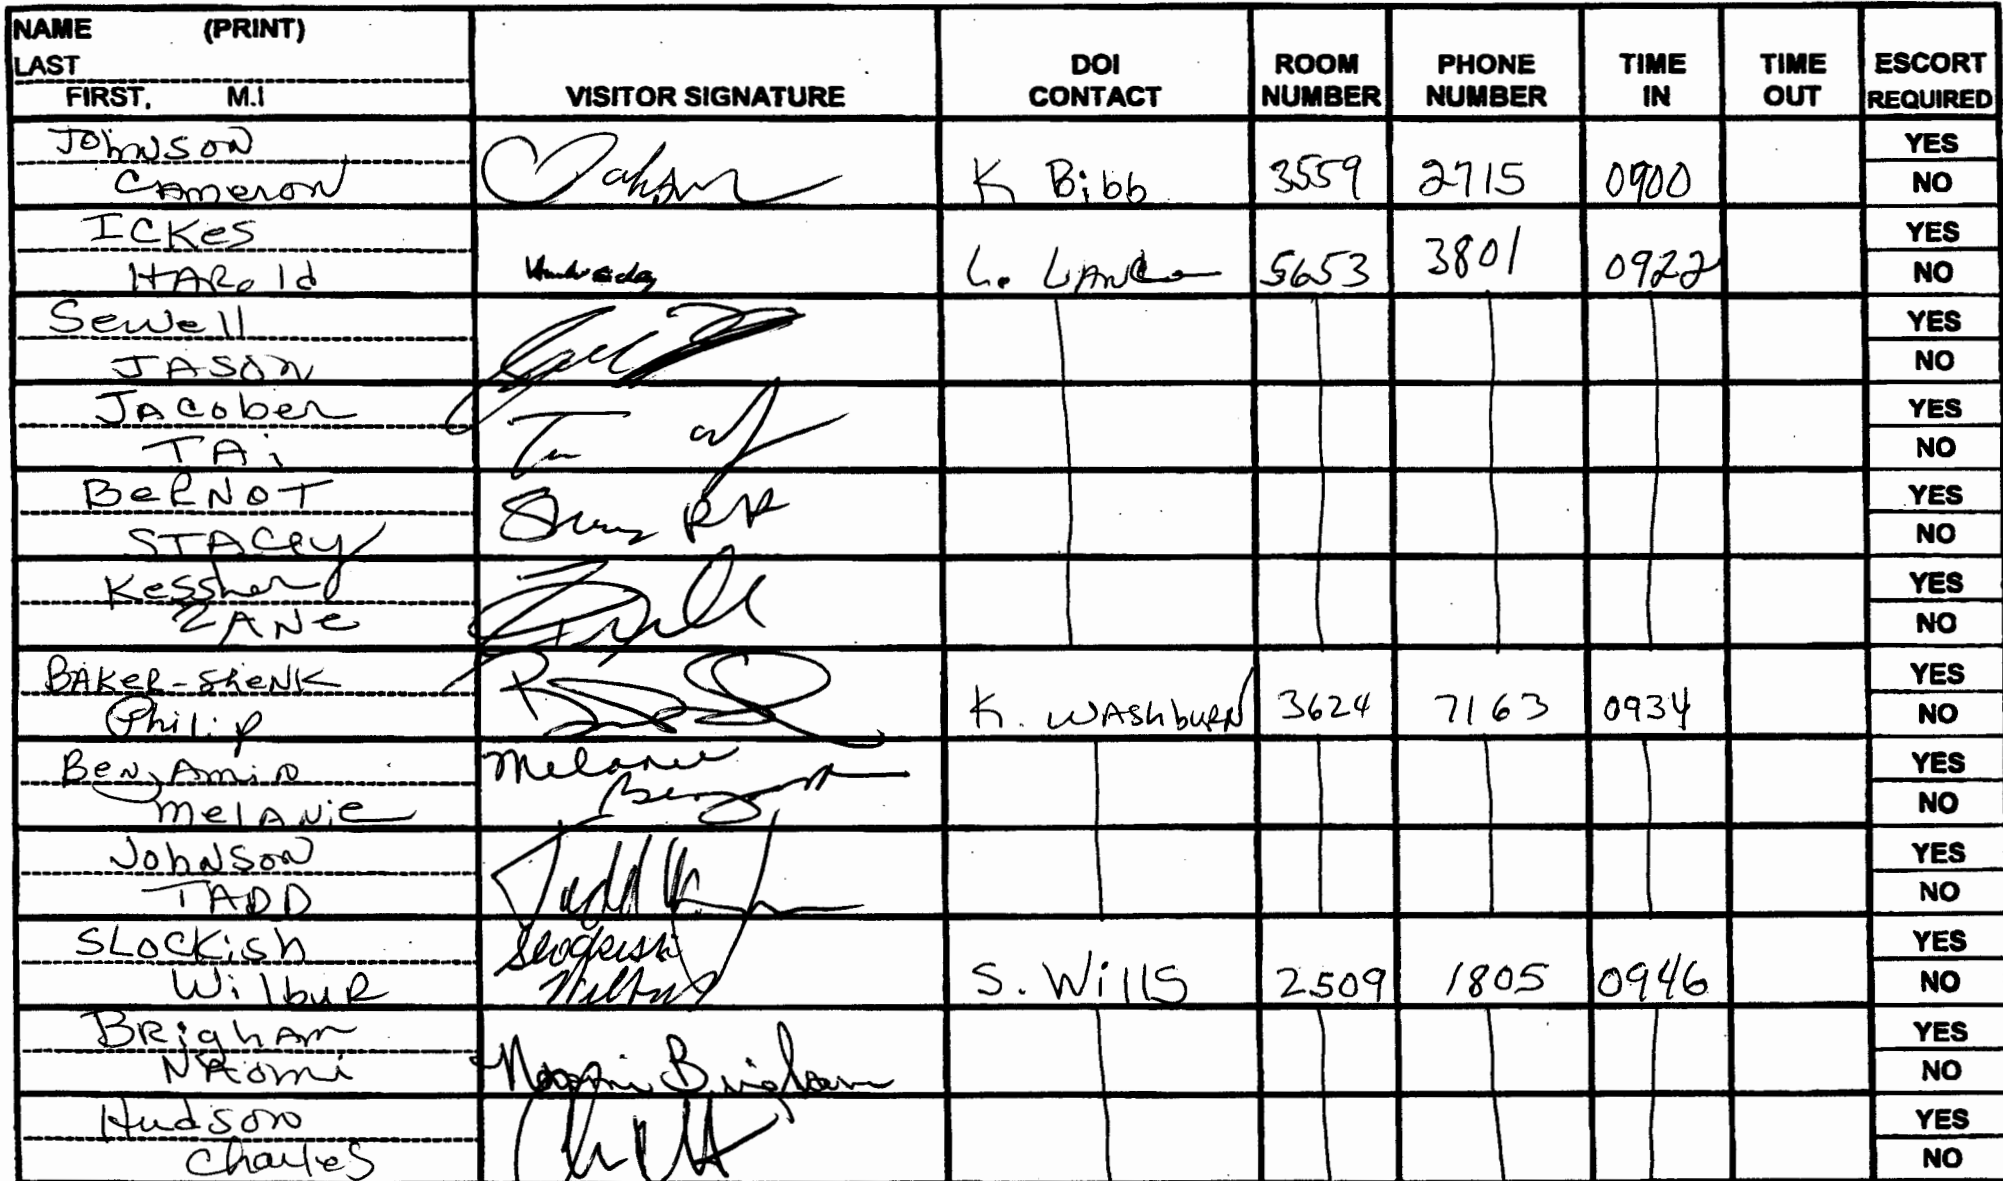 NAME (PRINT)
LAST
FIRST, M.I
VISITOR SIGNATURE
DOI CONTACT
ROOM NUMBER
PHONE NUMBER
TIME IN
TIME OUT
ESCORT REQUIRED
JOhNSON
CAmeroN K Bibb 3559 2715 0900 YES NO
ICKeS
HARold L. 5653 3801 0922 YES NO
Sewell
JASON YES NO
JAcober
TAi YES NO
BeRNOT
STACey YES NO
ZANe YES NO
BAKeR-SheNK
Philip K. WAShbuRN 3624 7163 0934 YES NO
BeNjAmiN Melanie
melANie YES NO
JohNSoN Tadd
TADD YES NO
SLocKish Slockish
WilbuR Wilbur S. Wills 2509 1805 0946 YES NO
BRighAm
NAomi Naomi Brigham YES NO
HudSoN
Charles YES NO